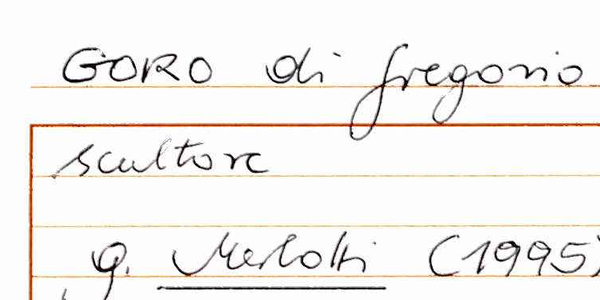 GORO di Gregorio
scultore
g. Merlotti (1995)